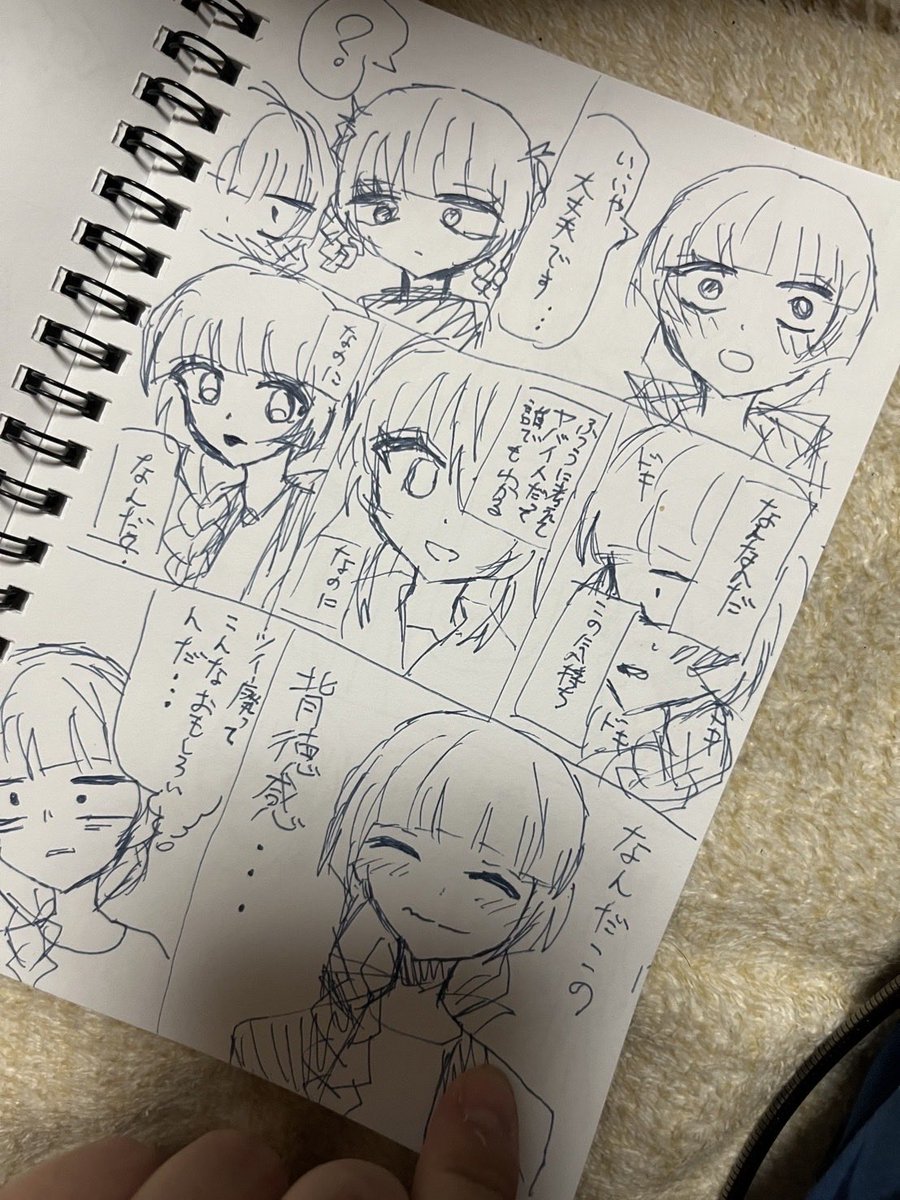 いいや
大丈夫です…
?
なんなんだ
この気持ち
ドキ
ドキ
ドキ
ふつうに考えて
ヤバイ人だって
誰でもわかる
なのに
なのに
なんだか
なんだこの
背徳感…
ツイ廃って
こんなおもしろいな
んだ…